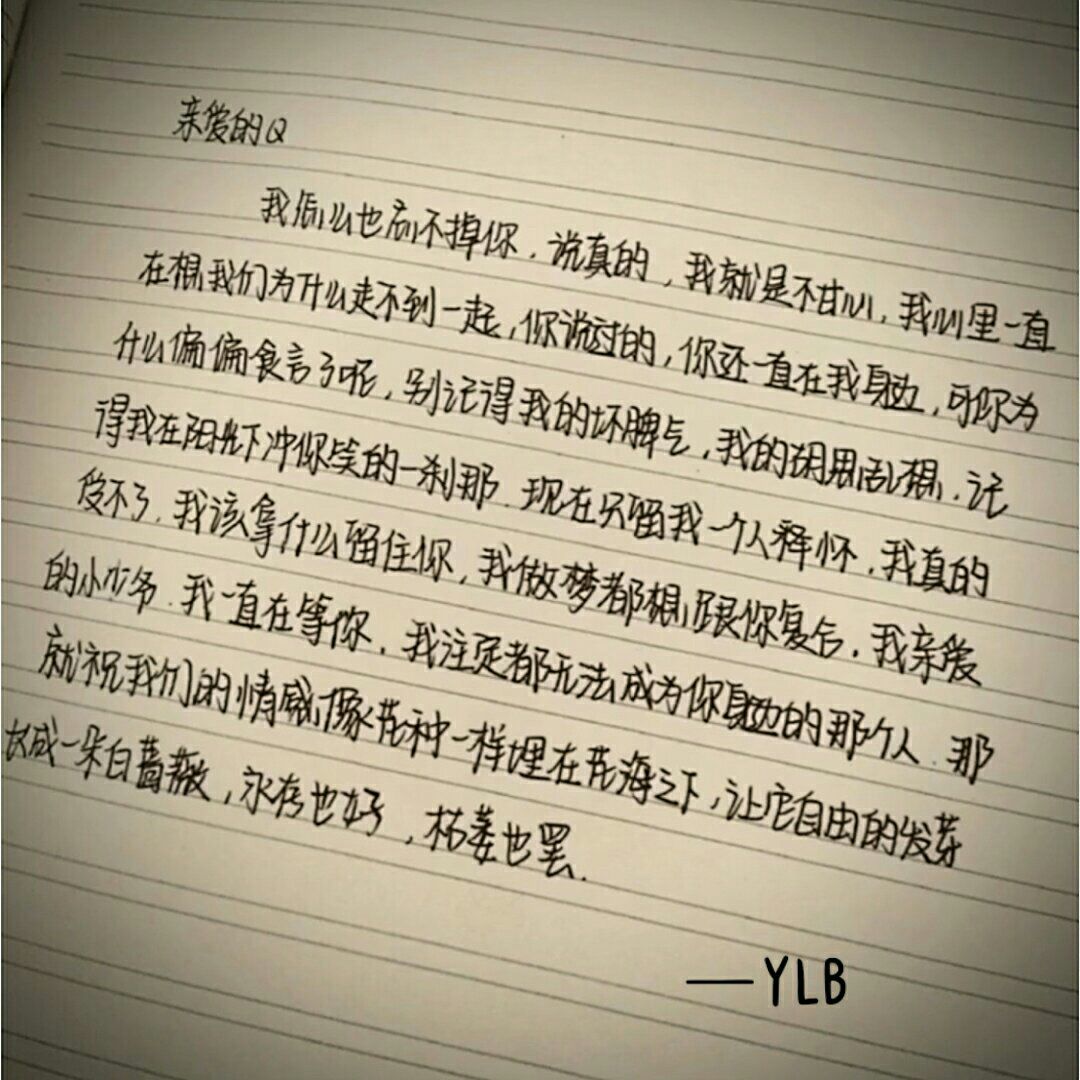 亲爱的Q
我怎么也忘不掉你，说真的，我就是不甘心，我心里一直
在想我们为什么走不到一起，你说过的，你还一直在我身边，可你为
什么偏偏食言了呢，别记得我的坏脾气，我的胡思乱想，记
得我在阳光下冲你笑的一刹那．现在只留我一个人释怀．我真的
受不了．我该拿什么留住你，我做梦都想跟你复合．我亲爱
的小少爷．我一直在等你．我注定都无法成为你身边的那个人．那
就祝我们的情感像花种一样埋在花海之下，让它自由的发芽
长成一朵白蔷薇，永存也好，枯萎也罢．
—YLB